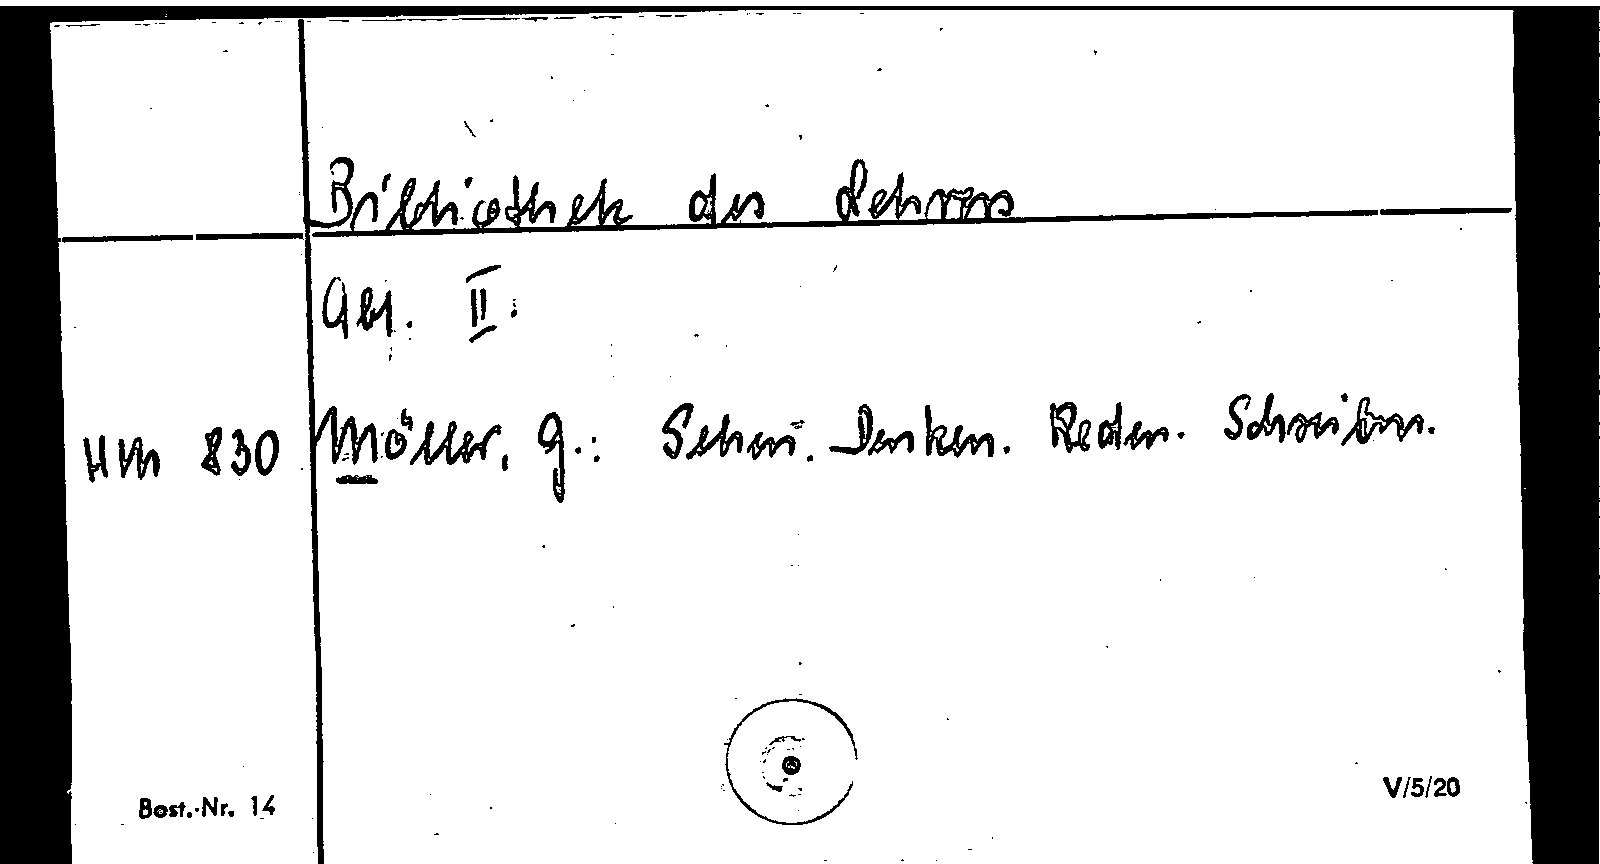 Bibliothek des Lehrers
Abt. II.
Hm 830 Möller, G.: Sehen. Denken. Reden. Schreiben.
Best.-Nr. 14
V/5/20